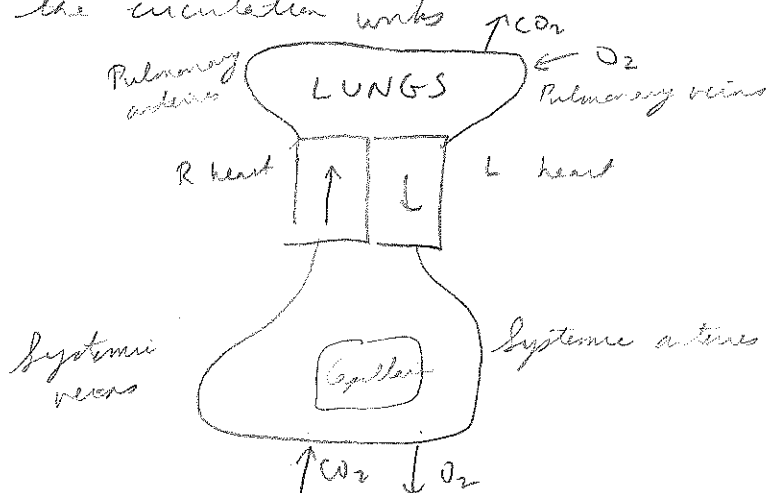 the circulation works
↑ CO2
← O2
Pulmonary
arteries
LUNGS
Pulmonary veins
R heart
↑
↓
L heart
Systemic
veins
Systemic arteries
↑ CO2 ↓ O2